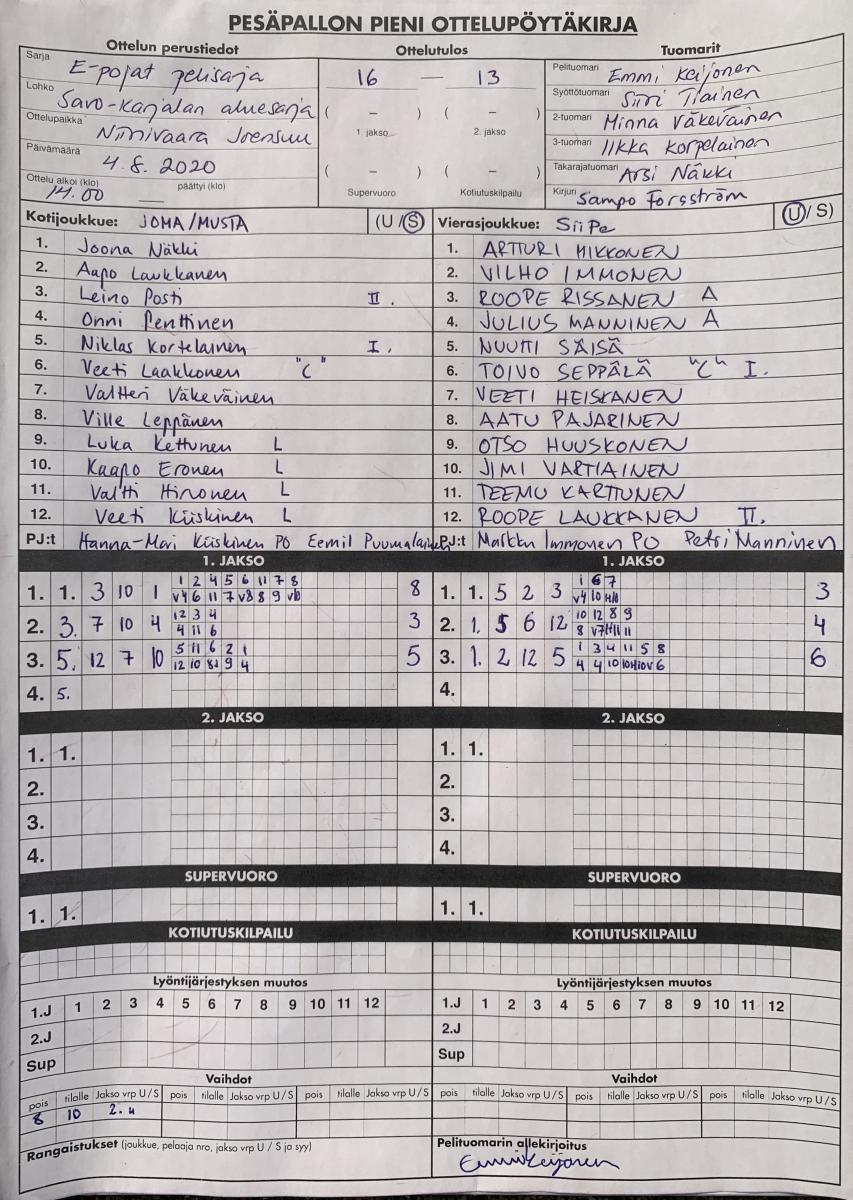 PESÄPALLON PIENI OTTELUPÖYTÄKIRJA
Ottelun perustiedot Ottelutulos Tuomarit
Sarja E-pojat pelisarja
Lohko Savo-Karjalan aluesarja
Ottelupaikka Niinivaara Joensuu
Päivämäärä 4.8.2020
Ottelu alkoi (klo) 14.00 päättyi (klo)
16 — 13
( – ) ( – )
1. jakso 2. jakso
( – ) ( – )
Supervuoro Kotiutuskilpailu
Pelituomari Emmi Keijonen
Syöttötuomari Siiri Tiainen
2-tuomari Minna Väkeväinen
3-tuomari Iikka Korpelainen
Takarajatuomari Arsi Näkki
Kirjuri Sampo Forsström
Kotijoukkue: JOMA/MUSTA (U/S)
1. Joona Näkki
2. Aapo Laukkanen
3. Leino Posti II.
4. Onni Penttinen
5. Niklas Kortelainen I.
6. Veeti Laakkonen "C"
7. Valtteri Väkeväinen
8. Ville Leppänen
9. Luka Kettunen L
10. Kaapo Eronen L
11. Valtti Hirvonen L
12. Veeti Kiiskinen L
PJ:t Hanna-Mari Kiiskinen PO Eemil Puumalainen
Vierasjoukkue: SiiPe (U/S)
1. ARTTURI MIKKONEN
2. VILHO IMMONEN
3. ROOPE RISSANEN A
4. JULIUS MANNINEN A
5. NUUTTI SÄISÄ
6. TOIVO SEPPÄLÄ "C" I.
7. VEETI HEISKANEN
8. AATU PAJARINEN
9. OTSO HUUSKONEN
10. JIMI VARTIAINEN
11. TEEMU KARTTUNEN
12. ROOPE LAUKKANEN II.
PJ:t Markku Immonen PO Petri Manninen
1. JAKSO
1. 1. 3 10 1 1 2 4 5 6 11 7 8 8
v4 6 11 7 v8 8 9 v10
2. 3. 7 10 4 12 3 4 3
4 11 6
3. 5. 12 7 10 5 11 6 2 1 5
12 10 9 4
4. 5.
1. JAKSO
1. 1. 5 2 3 1 6 7 3
v4 10
2. 1. 5 6 12 10 12 8 9 4
8 v7 11
3. 1. 2 12 5 1 3 4 11 5 8 6
4 4 10 6
4.
2. JAKSO 2. JAKSO
1. 1. 1. 1.
2. 2.
3. 3.
4. 4.
SUPERVUORO SUPERVUORO
1. 1. 1. 1.
KOTIUTUSKILPAILU KOTIUTUSKILPAILU
Lyöntijärjestyksen muutos Lyöntijärjestyksen muutos
1.J 1 2 3 4 5 6 7 8 9 10 11 12 1.J 1 2 3 4 5 6 7 8 9 10 11 12
2.J 2.J
Sup Sup
Vaihdot Vaihdot
pois tilalle Jakso vrp U / S pois tilalle Jakso vrp U / S pois tilalle Jakso vrp U / S pois tilalle Jakso vrp U / S pois tilalle Jakso vrp U / S pois tilalle Jakso vrp U / S
8 10 2. u
Rangaistukset (joukkue, pelaaja nro, jakso vrp U / S ja syy)
Pelituomarin allekirjoitus
Emmi Keijonen